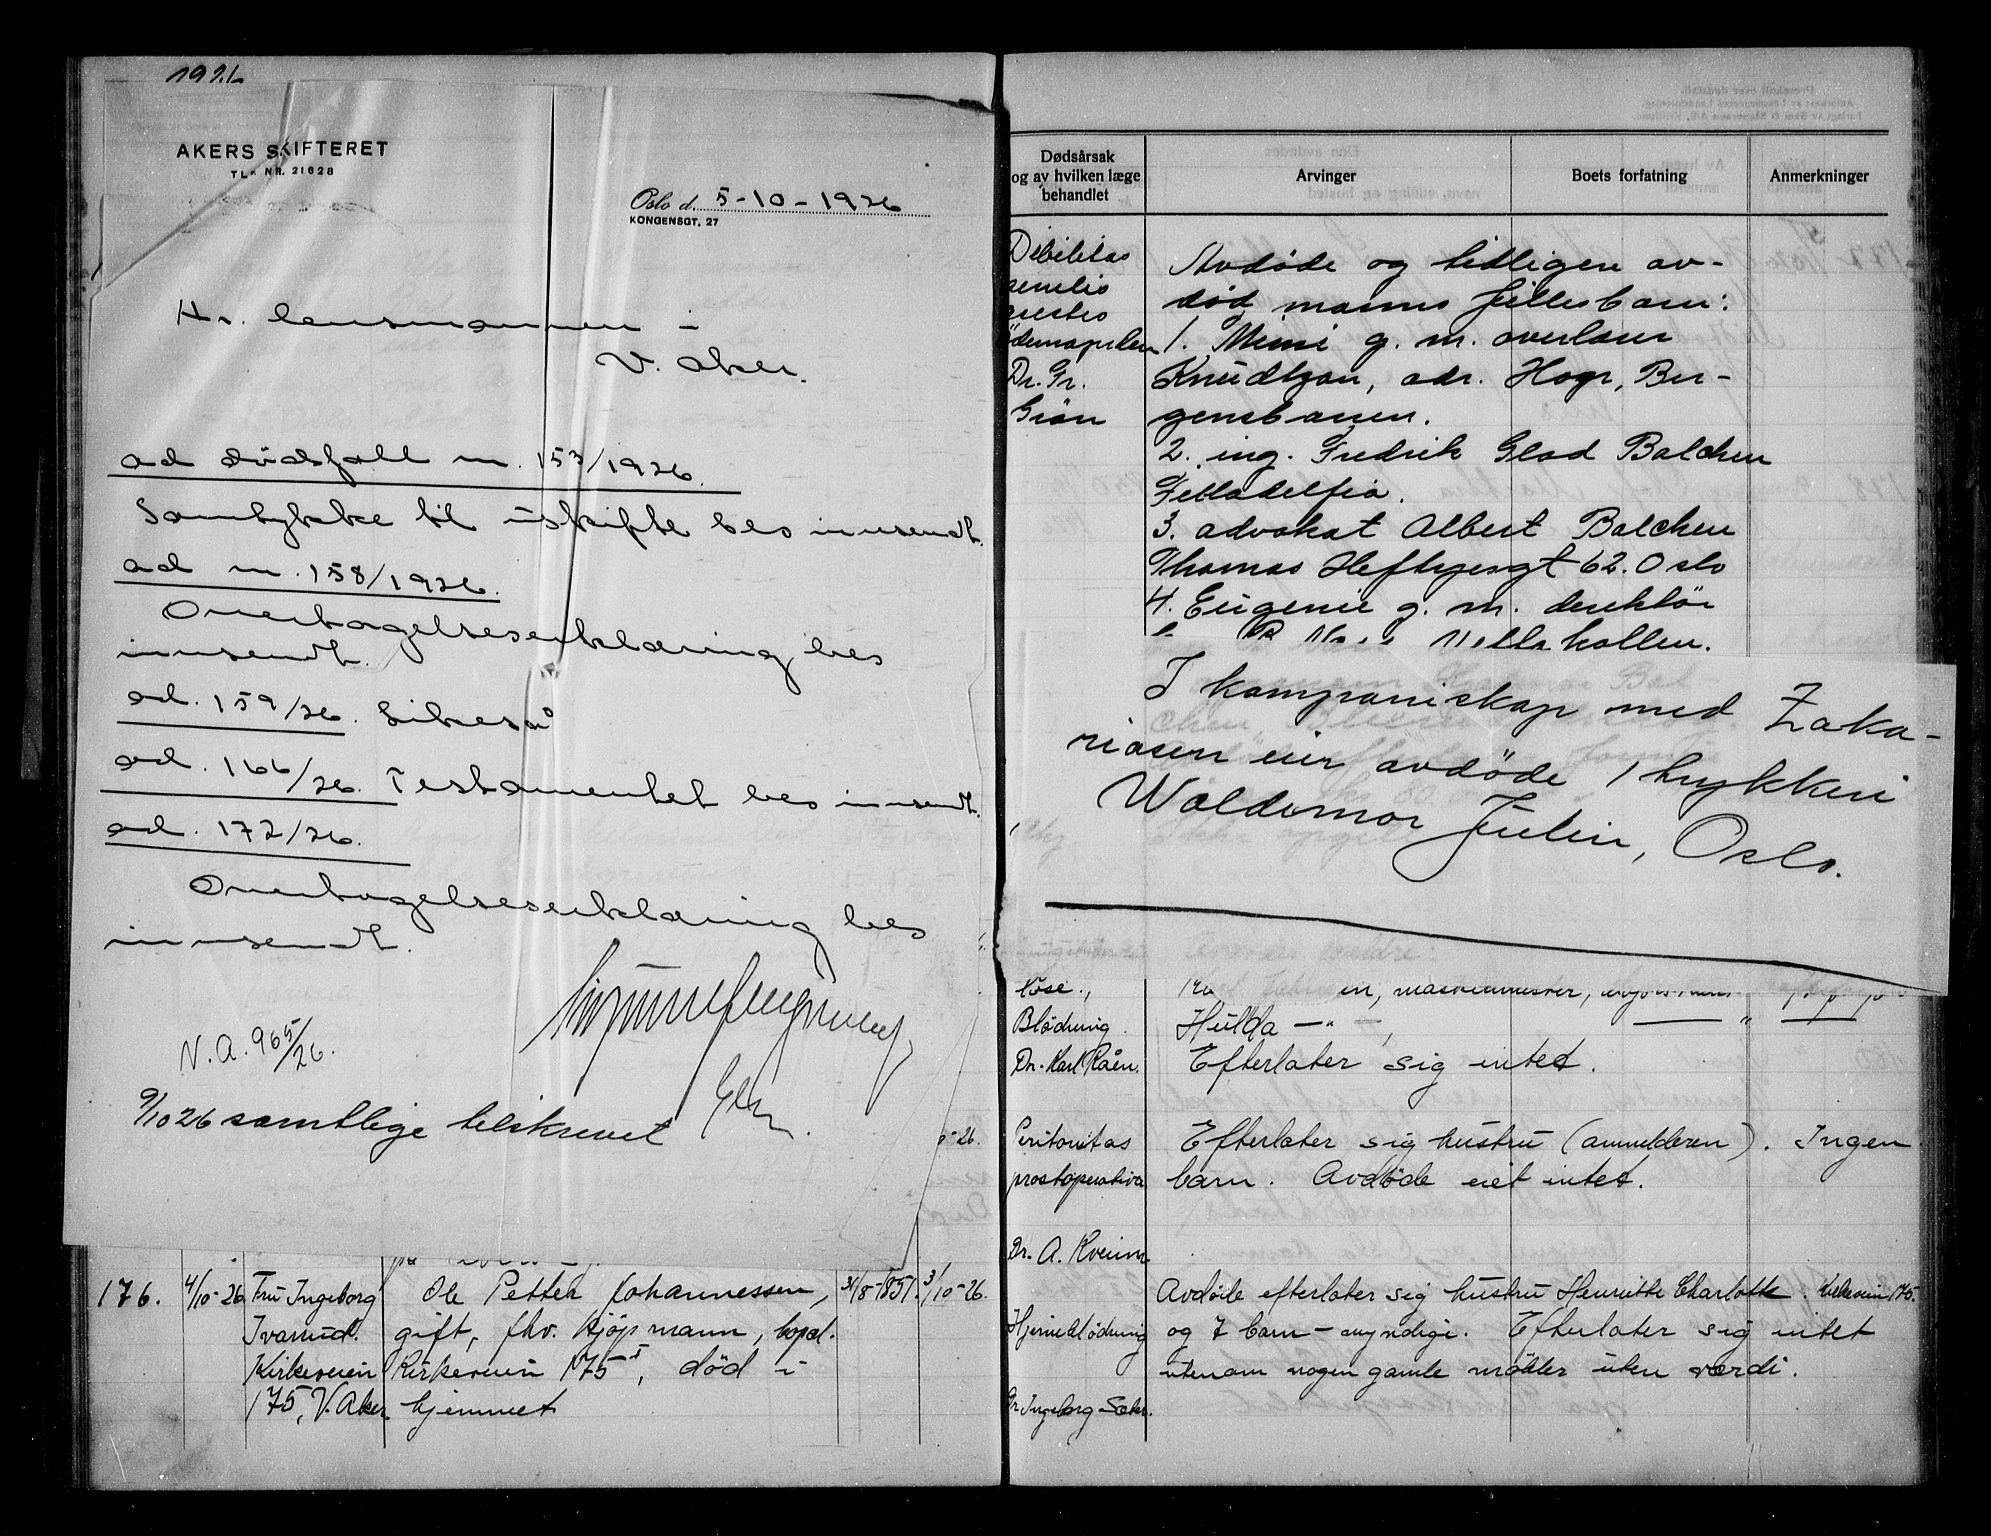 192
AKERS SKIFTERET
TLF NR. 21628
Oslo d. 5-10-1926
KONGENSGT. 27
Hr. lensmannen i
V. Aker.
ad dødsfall nr. 153/1926.
Samtykke til uskifte bes innsendt.
ad nr. 158/1926.
Overtagelseserklæring bes
innsendt.
ad. 159/26. Likeså
ad. 166/26. Testamentet bes innsendt.
ad. 172/26.
Overtagelseserklæring bes
innsendt.
N.A. 965/26.
9/10 26 samtlige tilskrevet
-26.
176.
4/10-26
Fru Ingeborg
Ivarrud.
Kirkeveien
175, V. Aker.
Ole Petter Johannessen,
gift, fhv. kjøpmann, bopæl.
Kirkeveien 175 I, død i
hjemmet
31/8-1851.
3/10-26.
Dødsårsak
og av hvilken læge
behandlet
Arvinger
Boets forfatning
Anmerkninger
Debilitas
senilis
Dr. Gr.
Grøn
Avdøde og tidligere av-
død manns fellesbarn:
1. Mimi g. m. overlærer
Knudtzon, adr. Hop, Ber-
gensbanen.
2. ing. Fredrik Glad Balchen
Filladelfia.
3. advokat Albert Balchen
Thomas Heftyesgt 62. Oslo
4. Eugenie g. m. direktør
I kompaniskap med Zaka-
riasen eier avdøde 1 trykkeri
Waldemar Julin, Oslo.
Blødning.
Dr. Karl Råen.
en, maskinmester,
Hulda —"—
Efterlater sig intet.
Peritonitas
postoperativa
Dr. A. Kveim
Efterlater sig hustru (anmelderen). Ingen
barn. Avdøde eiet intet.
Hjerneblødning
Dr. Ingeborg
Avdøde efterlater sig hustru Henriette Charlotte. Kirkeveien 175.
og 7 barn - myndige. Efterlater sig intet
utenom nogen gamle møbler uten værdi.